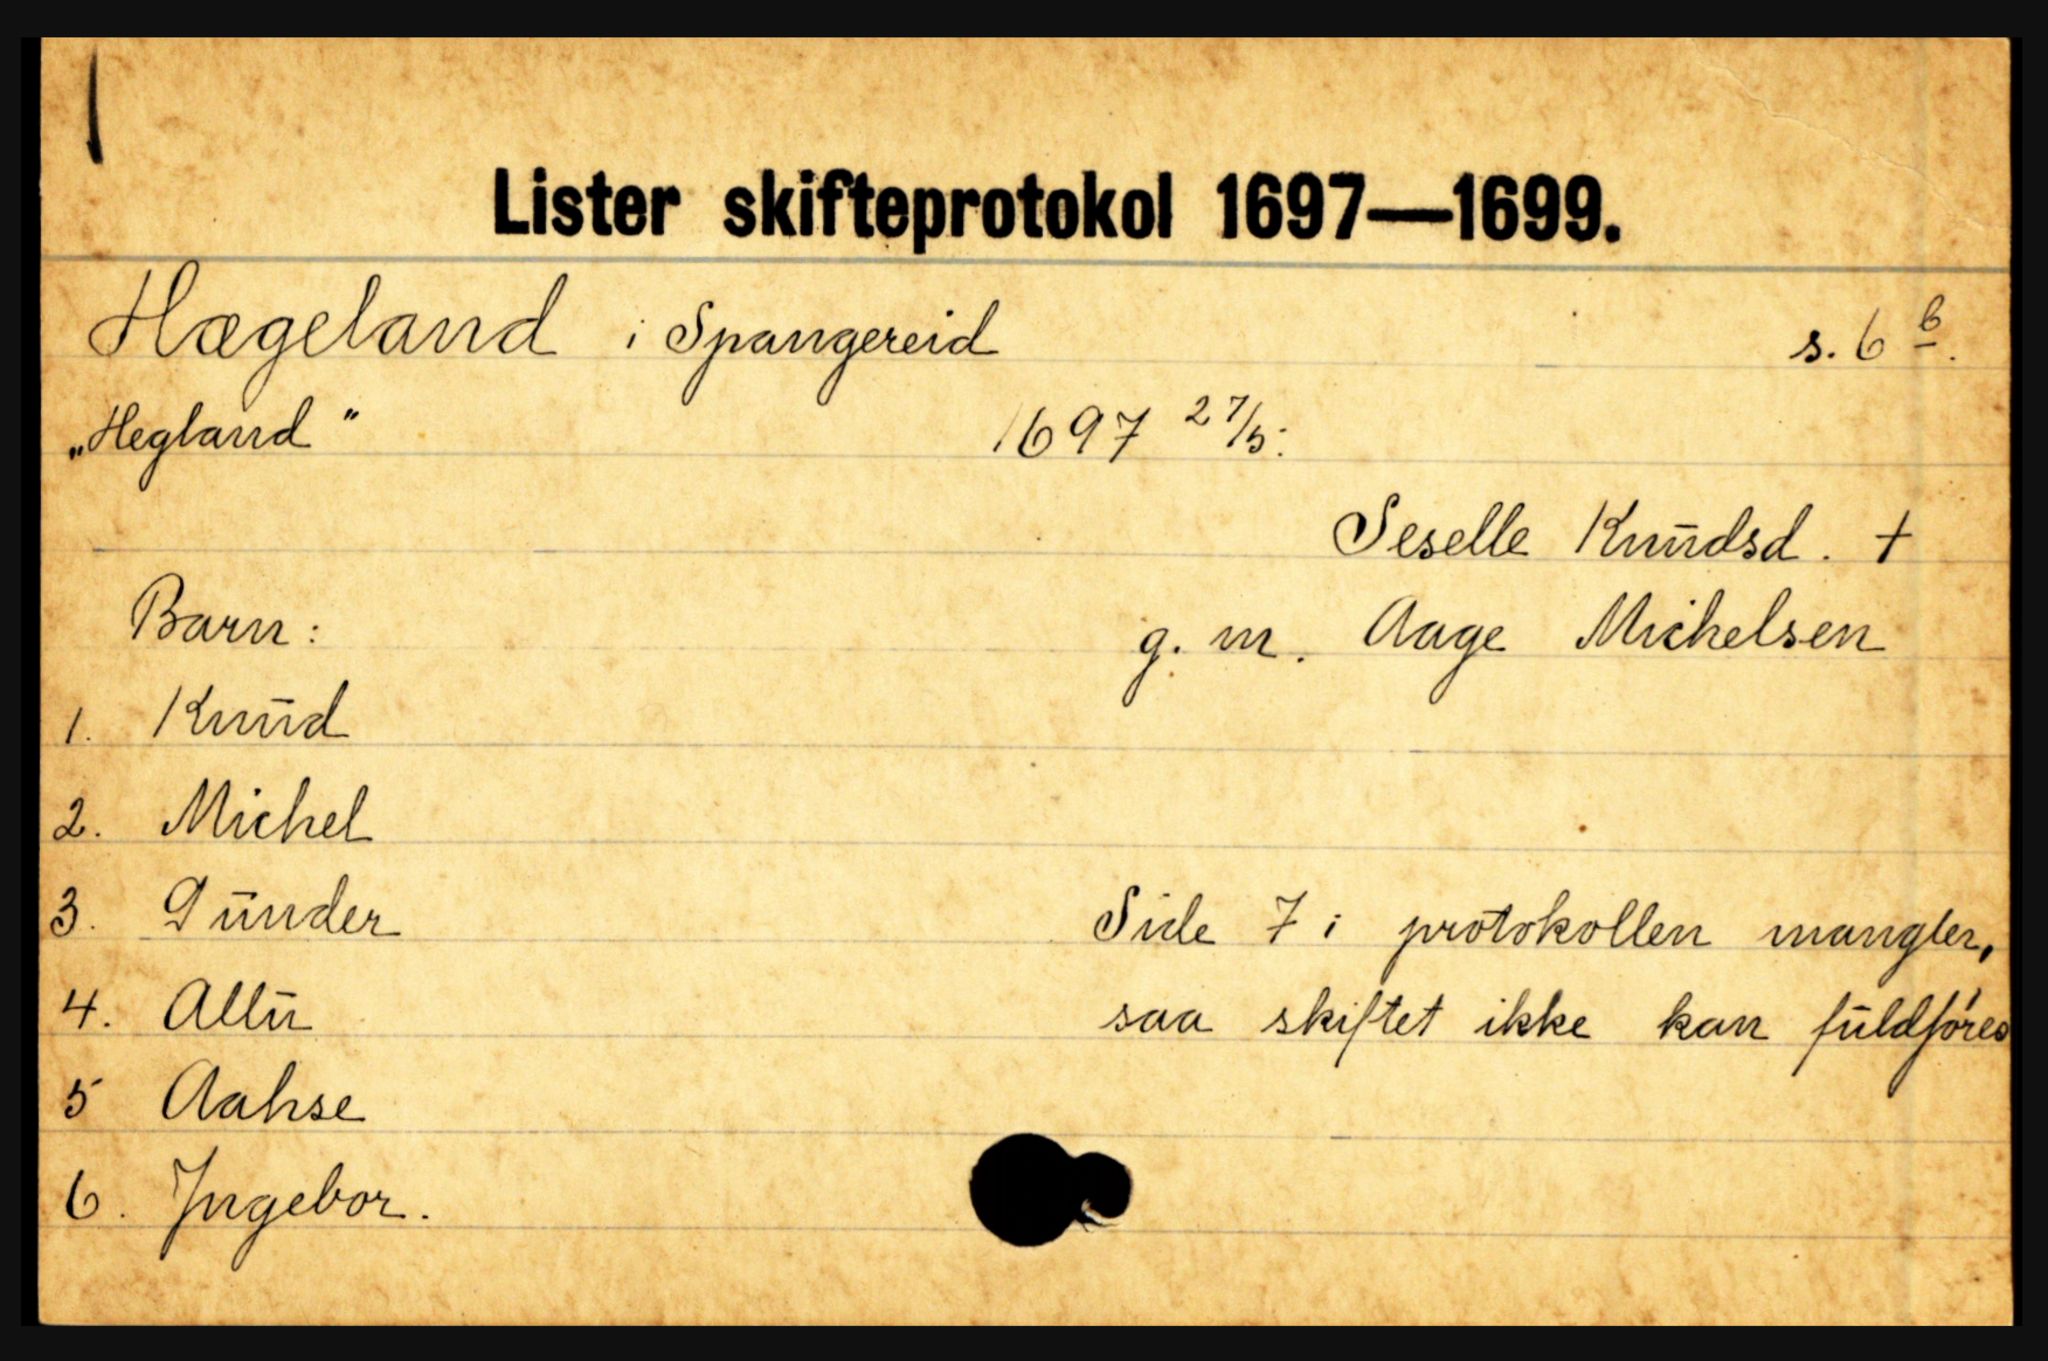 Lister skifteprotokol 1697—1699.
Hægeland i Spangereid s. 6 b.
„Hegland" 1697 27/5.
Seselle Knudsd. +
Barn: g. m. Aage Michelsen
1. Knud
2. Michel
3. Gunder Side 7 i protokollen mangler,
4. Allu saa skiftet ikke kan fuldføres
5 Aahse
6. Ingebor.